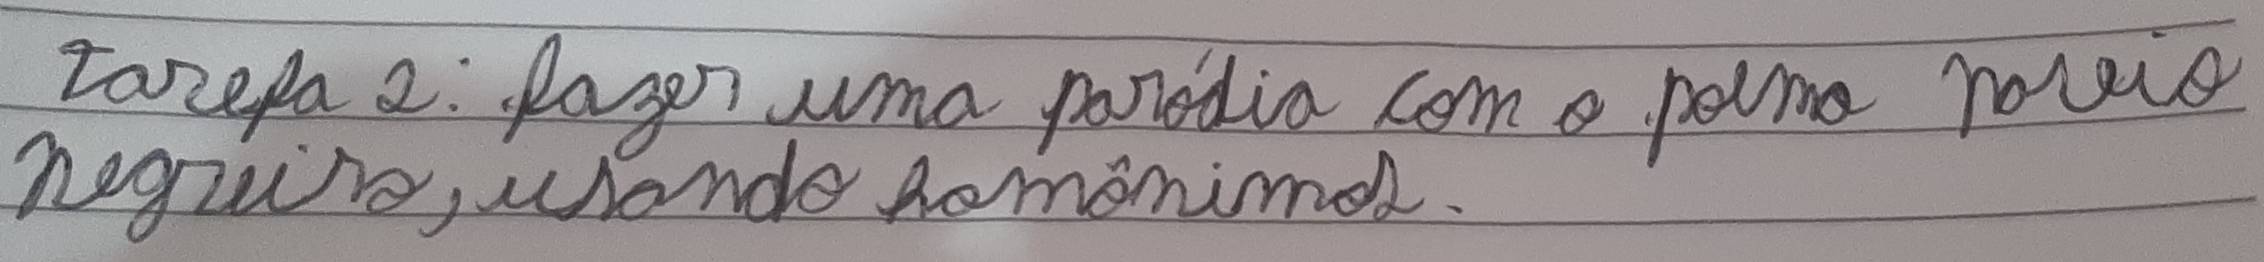 Tarefa 2: fazer uma paródia com o poema navio
negreiro, usando homônimos.